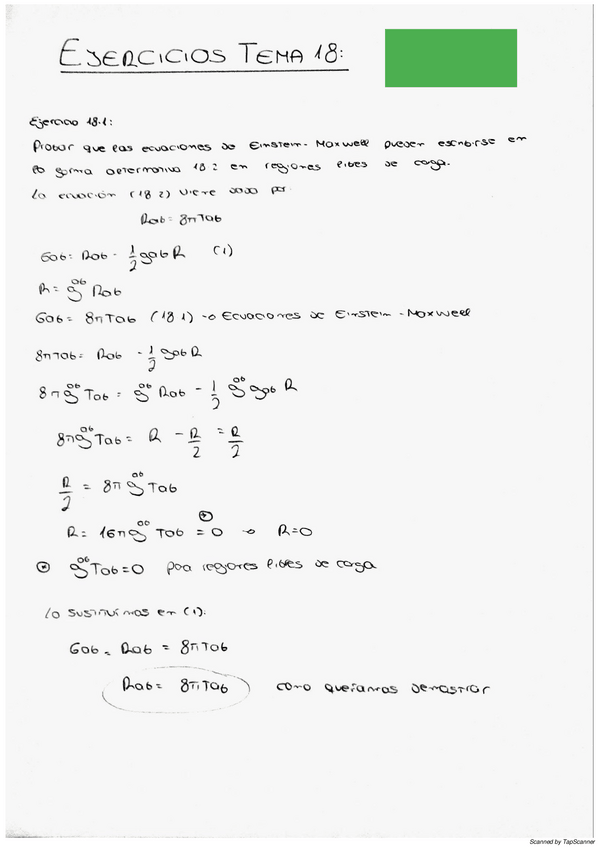 EJERCICIOS TEMA 18:
Ejercicio 18.1:
Probar que las ecuaciones de Einstein-Maxwell pueden escribirse en
la forma alternativa 18.2 en regiones libres de carga.
La ecuación (18.2) viene dada por:
Rab = 8πTab
Gab = Rab - 1/2 gab R (1)
R = g^ab Rab
Gab = 8πTab (18.1) → Ecuaciones de Einstein-Maxwell
8πTab = Rab - 1/2 gab R
8π g^ab Tab = g^ab Rab - 1/2 g^ab gab R
8π g^ab Tab = R - R/2 = R/2
R/2 = 8π g^ab Tab
R = 16π g^ab Tab = 0 → R=0
* g^ab Tab = 0 para regiones libres de carga
Lo sustituimos en (1):
Gab = Rab = 8πTab
Rab = 8πTab como queríamos demostrar
Scanned by TapScanner